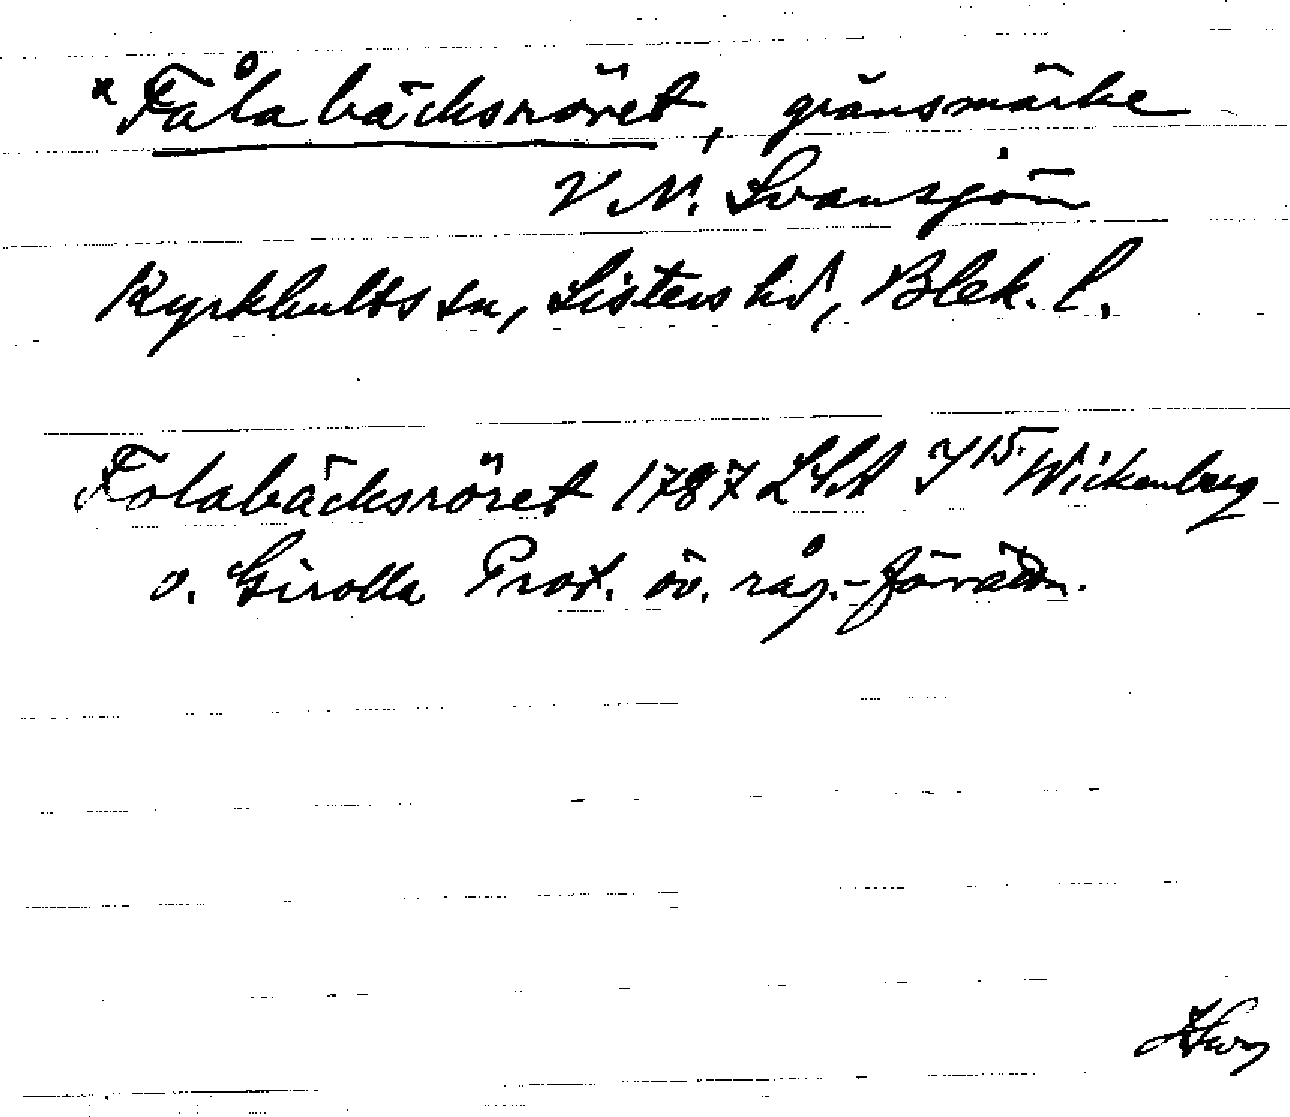 x Fålabäcksröret, gränsmärke
V. N. Svansjön
Kyrkhults sn, Listers hd, Blek. l.
Folabäcksröret 1787 LSA I 15. Wickenberg
o. Girolla Prot. öv. råg.-förrättn.